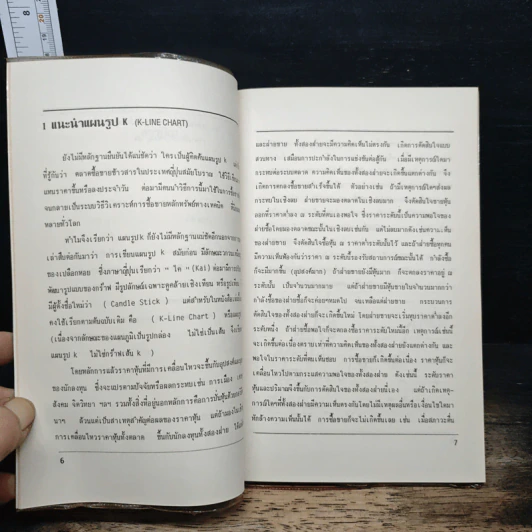 8
20
1 แนะนำแผนรูป K (K-LINE CHART)
ยังไม่มีหลักฐานยืนยันได้แน่ชัดว่า ใครเป็นผู้คิดค้นแผนรูป k
ที่รู้กันว่า ตลาดซื้อขายข้าวสารในประเทศญี่ปุ่นสมัยโบราณ
แทนราคาขึ้นหรือลงประจำวัน ต่อมามีคนนำวิธีการนี้ไปใช้
จนกลายเป็นระบบวิธีวิเคราะห์การซื้อขายหลักทรัพย์ทางเทคนิค
หลายทั่วโลก
ทำไมจึงเรียกว่า แผนรูป k ก็ยังไม่มีหลักฐานแน่ชัดอีก
เล่าสืบต่อกันมาว่า การเขียนแผนรูป k สมัยก่อน มีลักษณะ
ของเปลือกหอย ซึ่งภาษาญี่ปุ่นเรียกว่า " ไค " (Kai) ต่อมา
พัฒนารูปแบบของกร๊าฟ มีรูปลักษณ์เฉพาะคล้ายเชิงเทียน
มีผู้ตั้งชื่อใหม่ว่า ( Candle Stick ) แต่สำหรับในหนังสือ
คงใช้เรียกตามต้นฉบับเดิม คือ ( K-Line Chart )
(เนื่องจากลักษณะของแผนภูมิเป็นรูปกล่อง ไม่ใช่เป็นเส้น
แผนรูป k ไม่ใช่กร๊าฟเส้น k )
โดยหลักการแล้วราคาหุ้นที่มีการเคลื่อนไหวจะขึ้นกับ
ของนักลงทุน ซึ่งจะแปรตามปัจจัยหรือผลกระทบเช่น การเมือง
สังคม จิตวิทยา ฯลฯ รวมทั้งสิ่งที่อยู่นอกหลักการคือการปั่นหุ้น
นาฯ ล้วนแต่เป็นสาเหตุสำคัญต่อผลของราคาหุ้น
การเคลื่อนไหวราคาหุ้นทั้งตลาด ขึ้นกับนักลงทุนทั้งสองฝ่าย
6
และฝ่ายขาย ทั้งสองฝ่ายจะมีความคิดเห็นไม่ตรงกัน เกิดการตัดสินใจแบบ
สวนทาง เสมือนการประกาศในการแข่งขันต่อสู้กัน เมื่อมีเหตุการณ์ใดมา
กระทบต่อระบบตลาด ความคิดเห็นของทั้งสองฝ่ายจะเกิดขึ้นแตกต่างกัน จึง
เกิดการตกลงซื้อขายสำเร็จขึ้นได้ ตัวอย่างเช่น ถ้ามีเหตุการณ์ใดๆส่งผล
กระทบในเชิงลบ ฝ่ายขายจะมองตลาดในเชิงลบมาก จึงตัดสินใจขายหุ้น
ออกที่ราคาต่ำลง ณ ระดับที่ตนเองพอใจ ซึ่งราคาระดับนี้เป็นความพอใจของ
ฝ่ายซื้อโดยมองตลาดขณะนั้นในเชิงลบเช่นกัน แต่ไม่ลบมากดังเช่นความเห็น
ของฝ่ายขาย จึงตัดสินใจซื้อหุ้น ณ ราคาต่ำระดับนั้นไว้ และถ้าฝ่ายซื้อทุกคน
มีความเห็นพ้องกันว่าราคา ณ ระดับนี้รองรับสถานการณ์ขณะนั้นได้ กำลังซื้อ
ก็จะมีมากขึ้น (อุปสงค์มาก) ถ้าฝ่ายขายยังมีหุ้นมาก ก็จะตกลงราคาอยู่ ณ
ระดับนั้น เป็นจำนวนมากมาย แต่ถ้าฝ่ายขายมีหุ้นขายในจำนวนมากกว่า
กำลังซื้อของฝ่ายซื้อก็จะค่อยๆหมดไป จนเหลือแต่ฝ่ายขาย กระบวนการ
ตัดสินใจของทั้งสองฝ่ายจะเกิดขึ้นใหม่ โดยฝ่ายขายจะเริ่มทุบราคาต่ำลงอีก
ระดับหนึ่ง ถ้าฝ่ายซื้อพอใจก็จะตกลงซื้อราคาระดับใหม่นี้อีก เหตุการณ์เช่นนี้
จะเกิดขึ้นต่อเนื่องตราบเท่าที่ความคิดเห็นของทั้งสองฝ่ายยังแตกต่างกัน และ
พอใจในราคาระดับที่ตนเห็นชอบ การซื้อขายก็เกิดขึ้นต่อเนื่อง ราคาหุ้นก็จะ
เคลื่อนไหวไปตามกระแสความพอใจของทั้งสองฝ่าย ดังเช่นนี้ ระดับราคา
หุ้นและปริมาณจึงขึ้นกับการตัดสินใจของทั้งสองฝ่ายนี่เอง แต่ถ้าเกิดเหตุ-
การณ์ใดๆที่ทั้งสองฝ่ายมีความเห็นตรงกันโดยไม่มีเหตุผลอื่นหรือเงื่อนไขใดมา
หักล้างความเห็นนั้นได้ การซื้อขายก็จะไม่เกิดขึ้นเลย เช่น เมื่อสภาวะตื่น
7